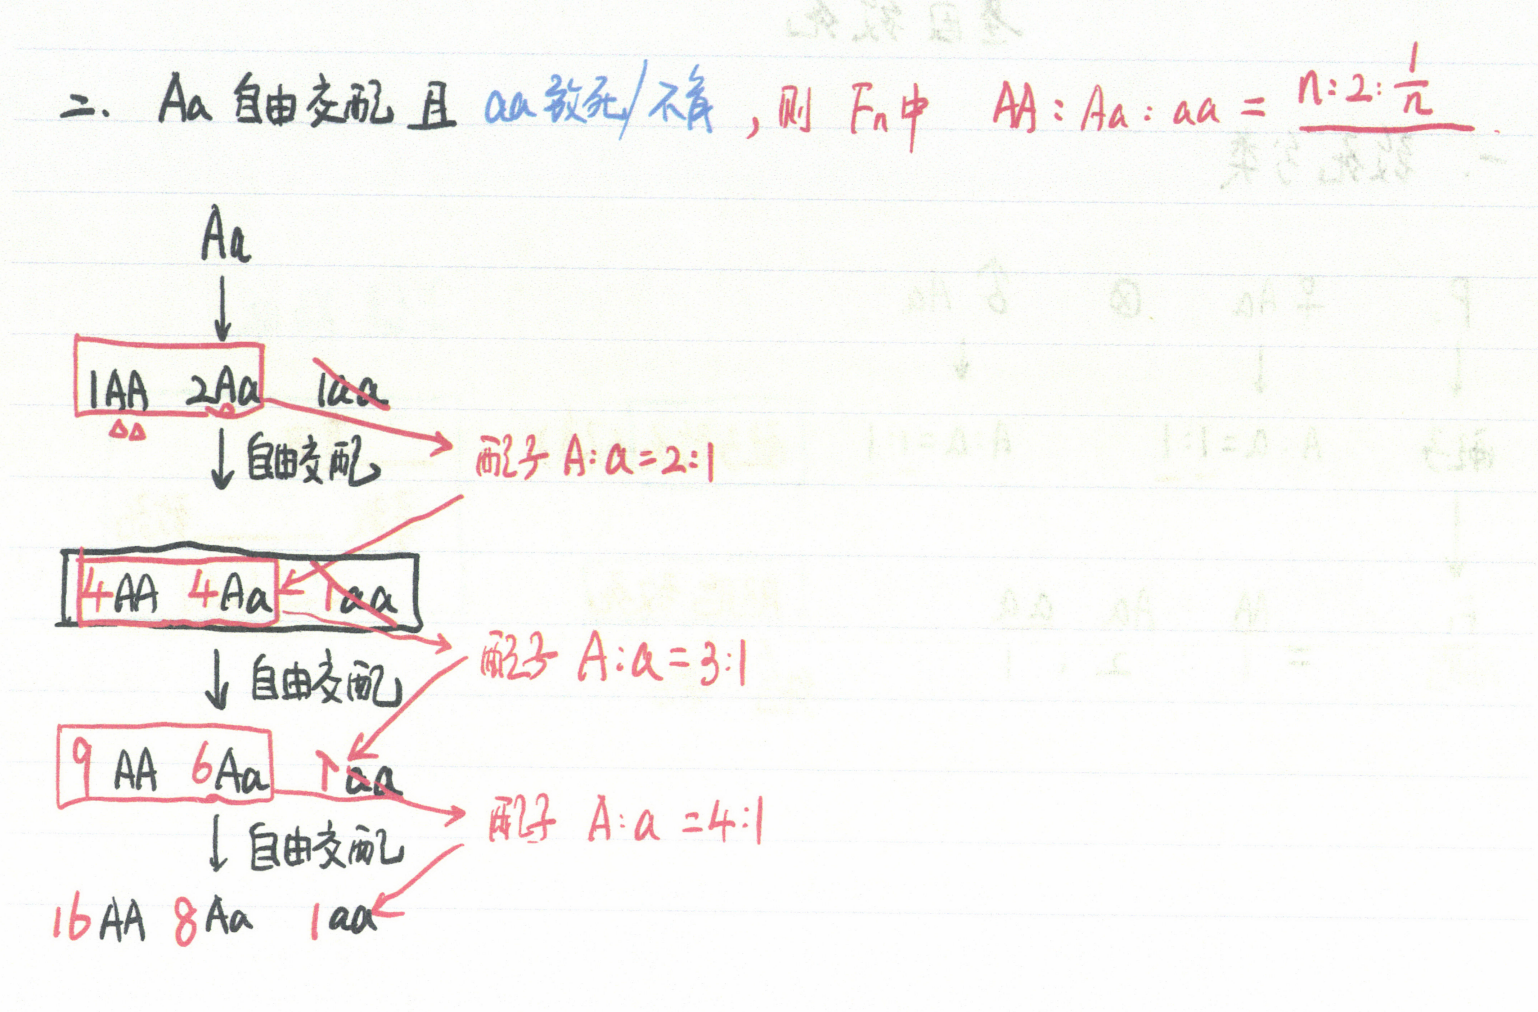 二. Aa 自由交配 且 aa 致死/不育, 则 Fn中 AA:Aa:aa = n:2:1/n.
Aa
1AA 2Aa 1aa
自由交配 配子 A:a=2:1
4AA 4Aa 1aa
自由交配 配子 A:a=3:1
9 AA 6Aa 1aa
自由交配 配子 A:a=4:1
16AA 8Aa 1aa